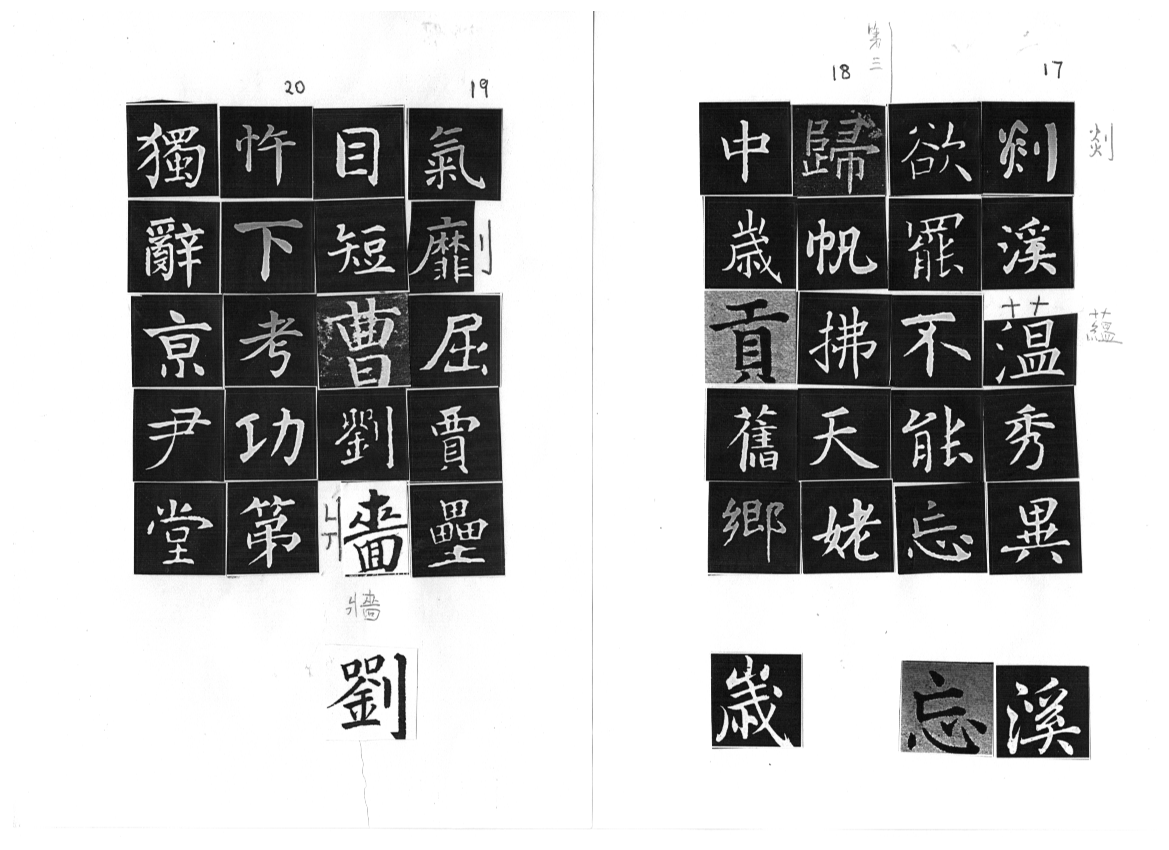 17
剡溪薀秀異
剡
蘊
欲罷不能忘
18
第三
歸帆拂天姥
中歲貢舊鄉
溪
忘
歲
19
氣劘屈賈壘
目短曹劉牆
牆
劉
20
忤下考功第
獨辭亰尹堂